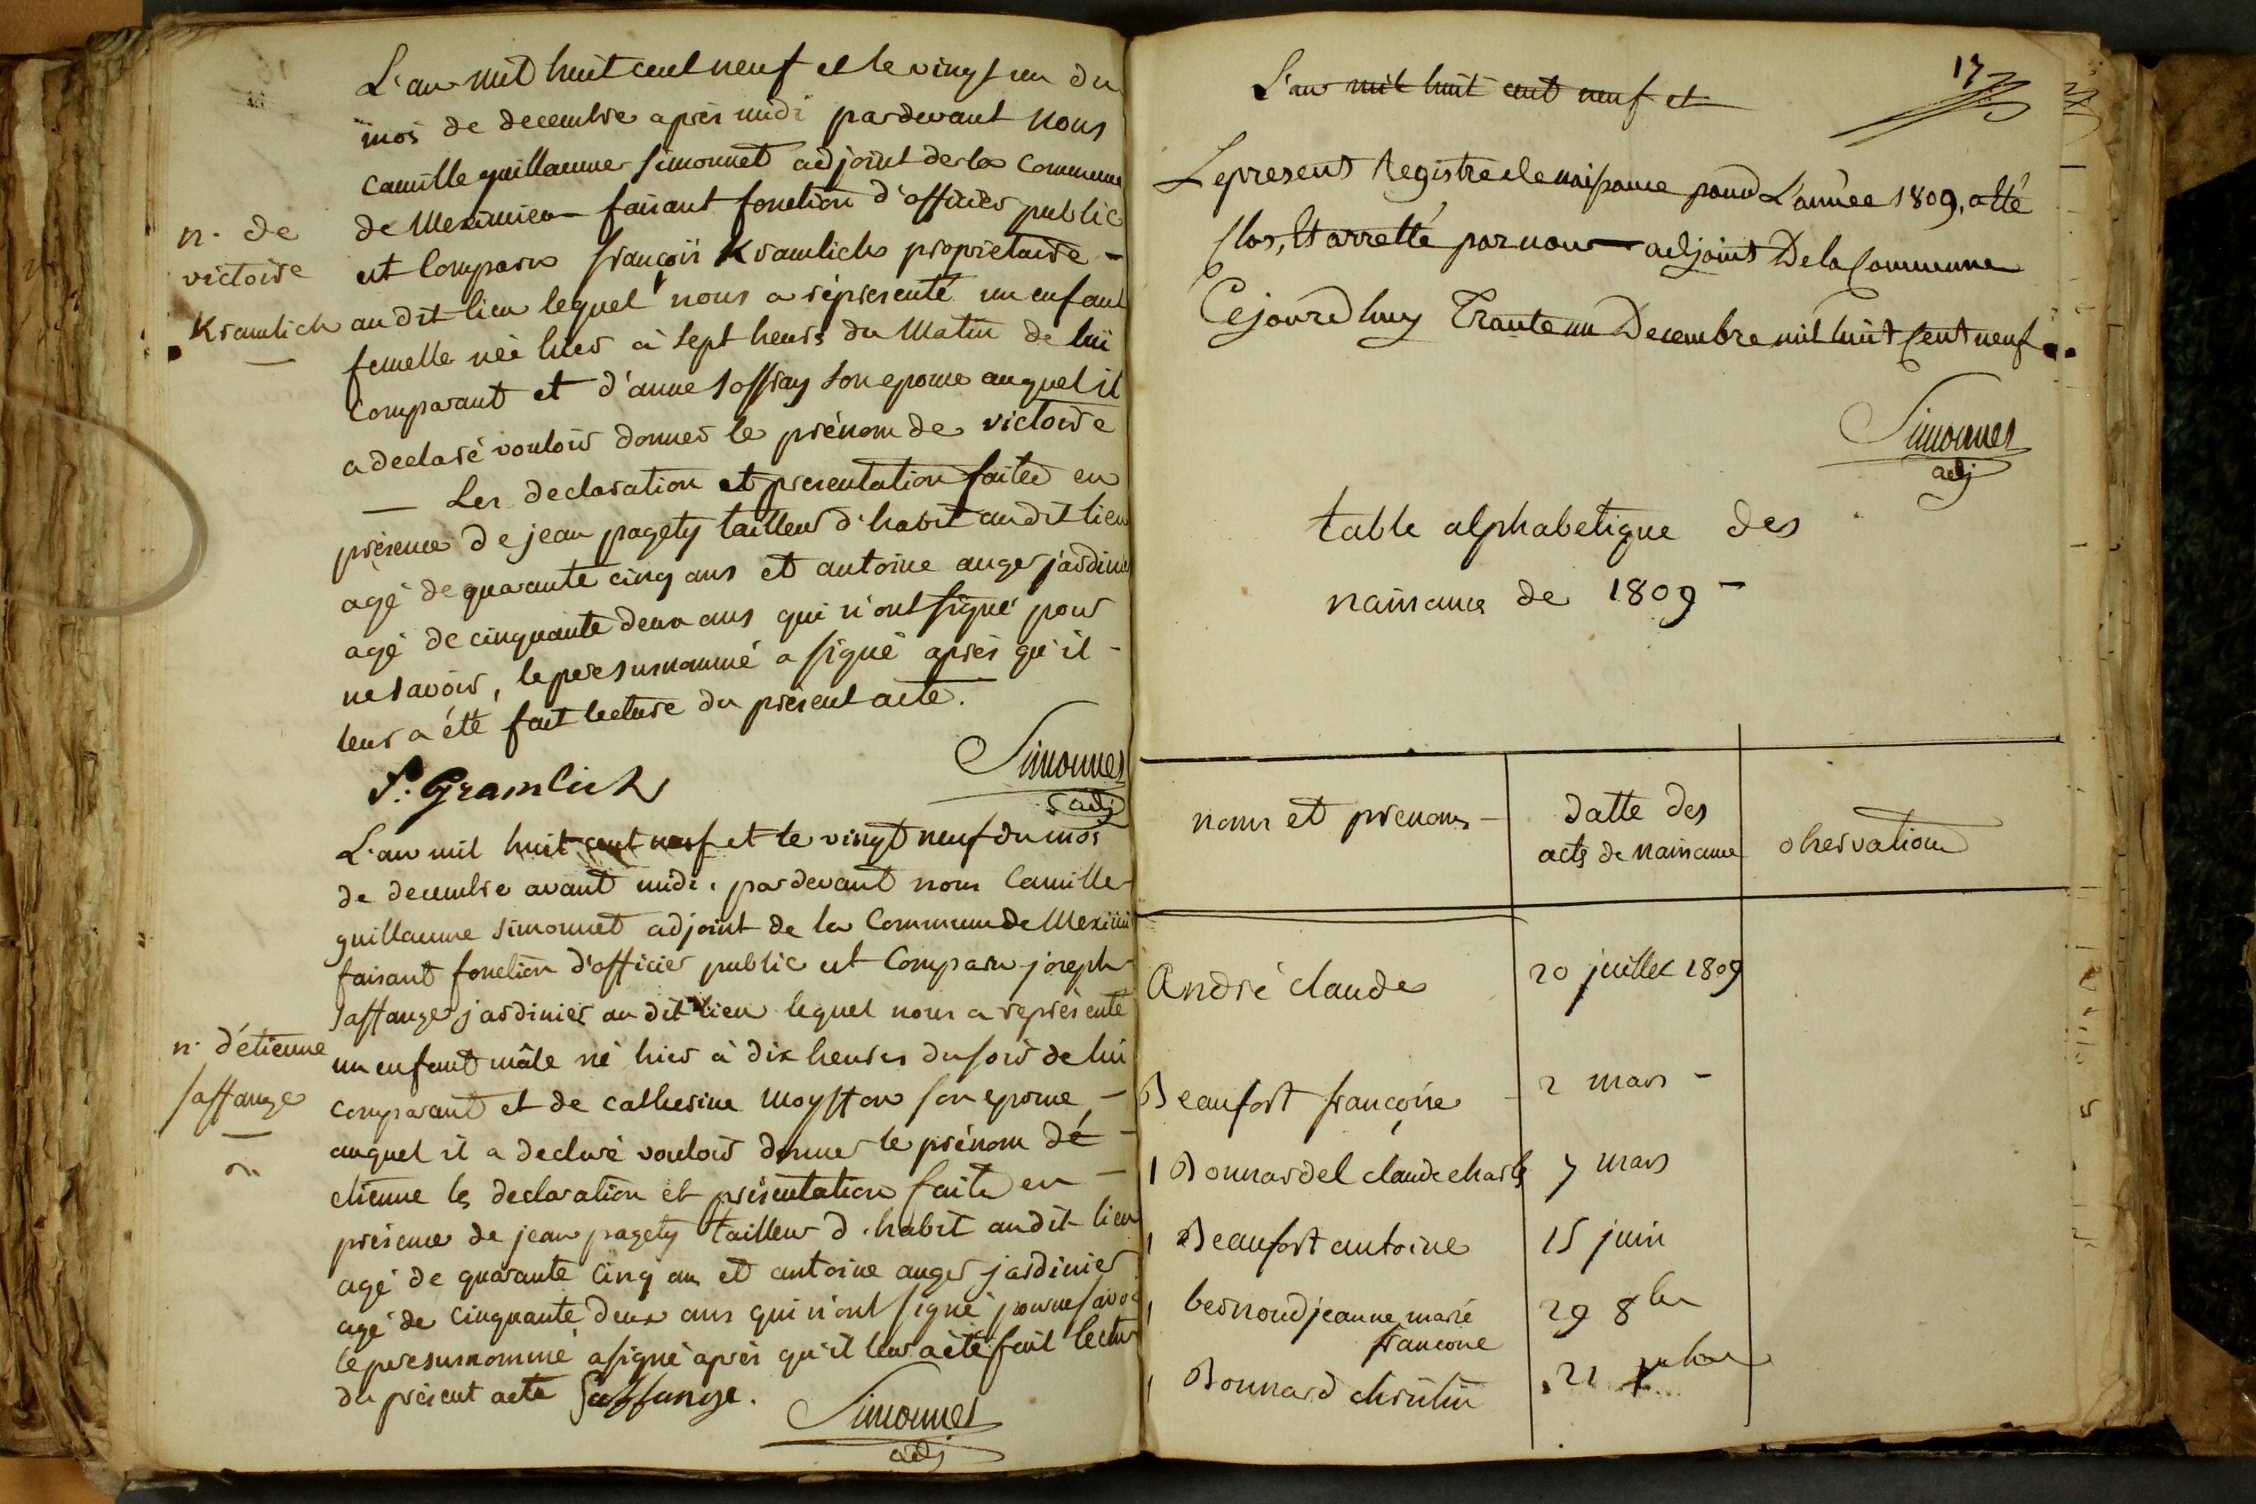 L'an mil huit cent neuf et le vingt un du
mois de decembre après midi pardevant nous
camille guillaume simonnet adjoint de la commune
de Meximieu faisant fonction d'officier public
n. de
victoire
Kramlich
est comparu françois Kramlich proprietaire -
au dit lieu lequel nous a réprésenté un enfant
femelle néé hier à sept heurs du Matin de lui
comparant et d'anne soffray son epouse auquel il
a declaré vouloir donner le prénom de victoire
— Les declaration et presentation faites en
présence de jean pagety tailleur d'habit au dit lieu
agé de quarante cinq ans et antoine auger jardinier
agé de cinquante deux ans qui n'ont signé pour
ne savoir, le pere susnommé a signé après qu'il -
leur a été fait lecture du présent acte.
f. Gramlich
Simonnet
adj
L'an mil huit cent neuf et le vingt neuf du mois
de decembre avant midi, pardevant nous Camille
guillaume simonnet adjoint de la Commune de Meximi
faisant fonction d'officier public est Comparu joseph
saffange jardinier au dit lieu lequel nous a représenté
n. d'étienne
saffange
un enfant mâle né hier à dix heures du soir de lui
comparant et de catherine son epouse, -
auquel il a declaré vouloir donner le prénom dé -
etienne les declaration et présentation faite en -
présence de jean pagety tailleur d'habit au dit lieu
agé de quarante cinq ans et antoine auger jardinier
agé de cinquante deux ans qui n'ont signé pour ne savoir
le pere susnommé a signé après qu'il leur a été fait lecture
du présent acte Saffange.
Simonnet
adj
17
L'an mil huit cent neuf et
Le present Registre de naissance pour L'année 1809, a été
Clos, Et arretté par nous adjoint De la Commune
Cejourd huy Trante un Decembre mil huit Cent neuf..
Simonnet
adj
table alphabetique des
naissance de 1809 -
noms et prenoms - datte des
acts de naissance observations
André claude 20 juillet 1809
Beaufort françoise 2 mars -
Bonnardel claude charls 7 mars
Beaufort antoine 15 juin
bernoud jeanne marie
francoise 29 8bre
Bonnard christin 21